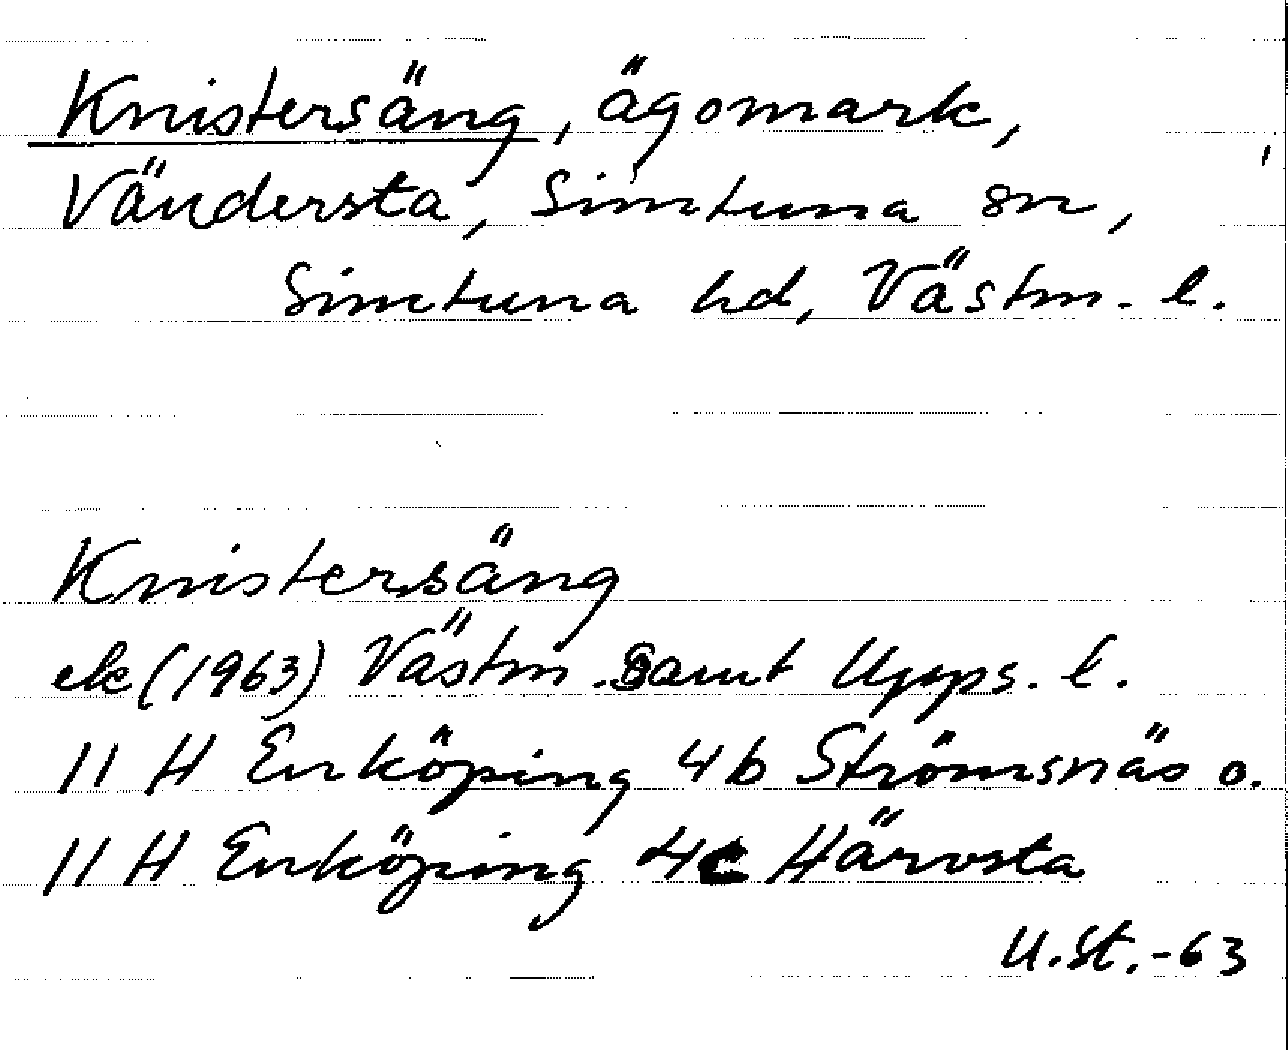 Knistersäng, ägomark,
Vändersta, Simtuna sn,
Simtuna hd, Västm. l.
Knistersäng
ek (1963) Västm. samt Upps. l.
11 H Enköping 4b Strömsnäs o.
11 H Enköping 4c Härvsta
U.St.-63